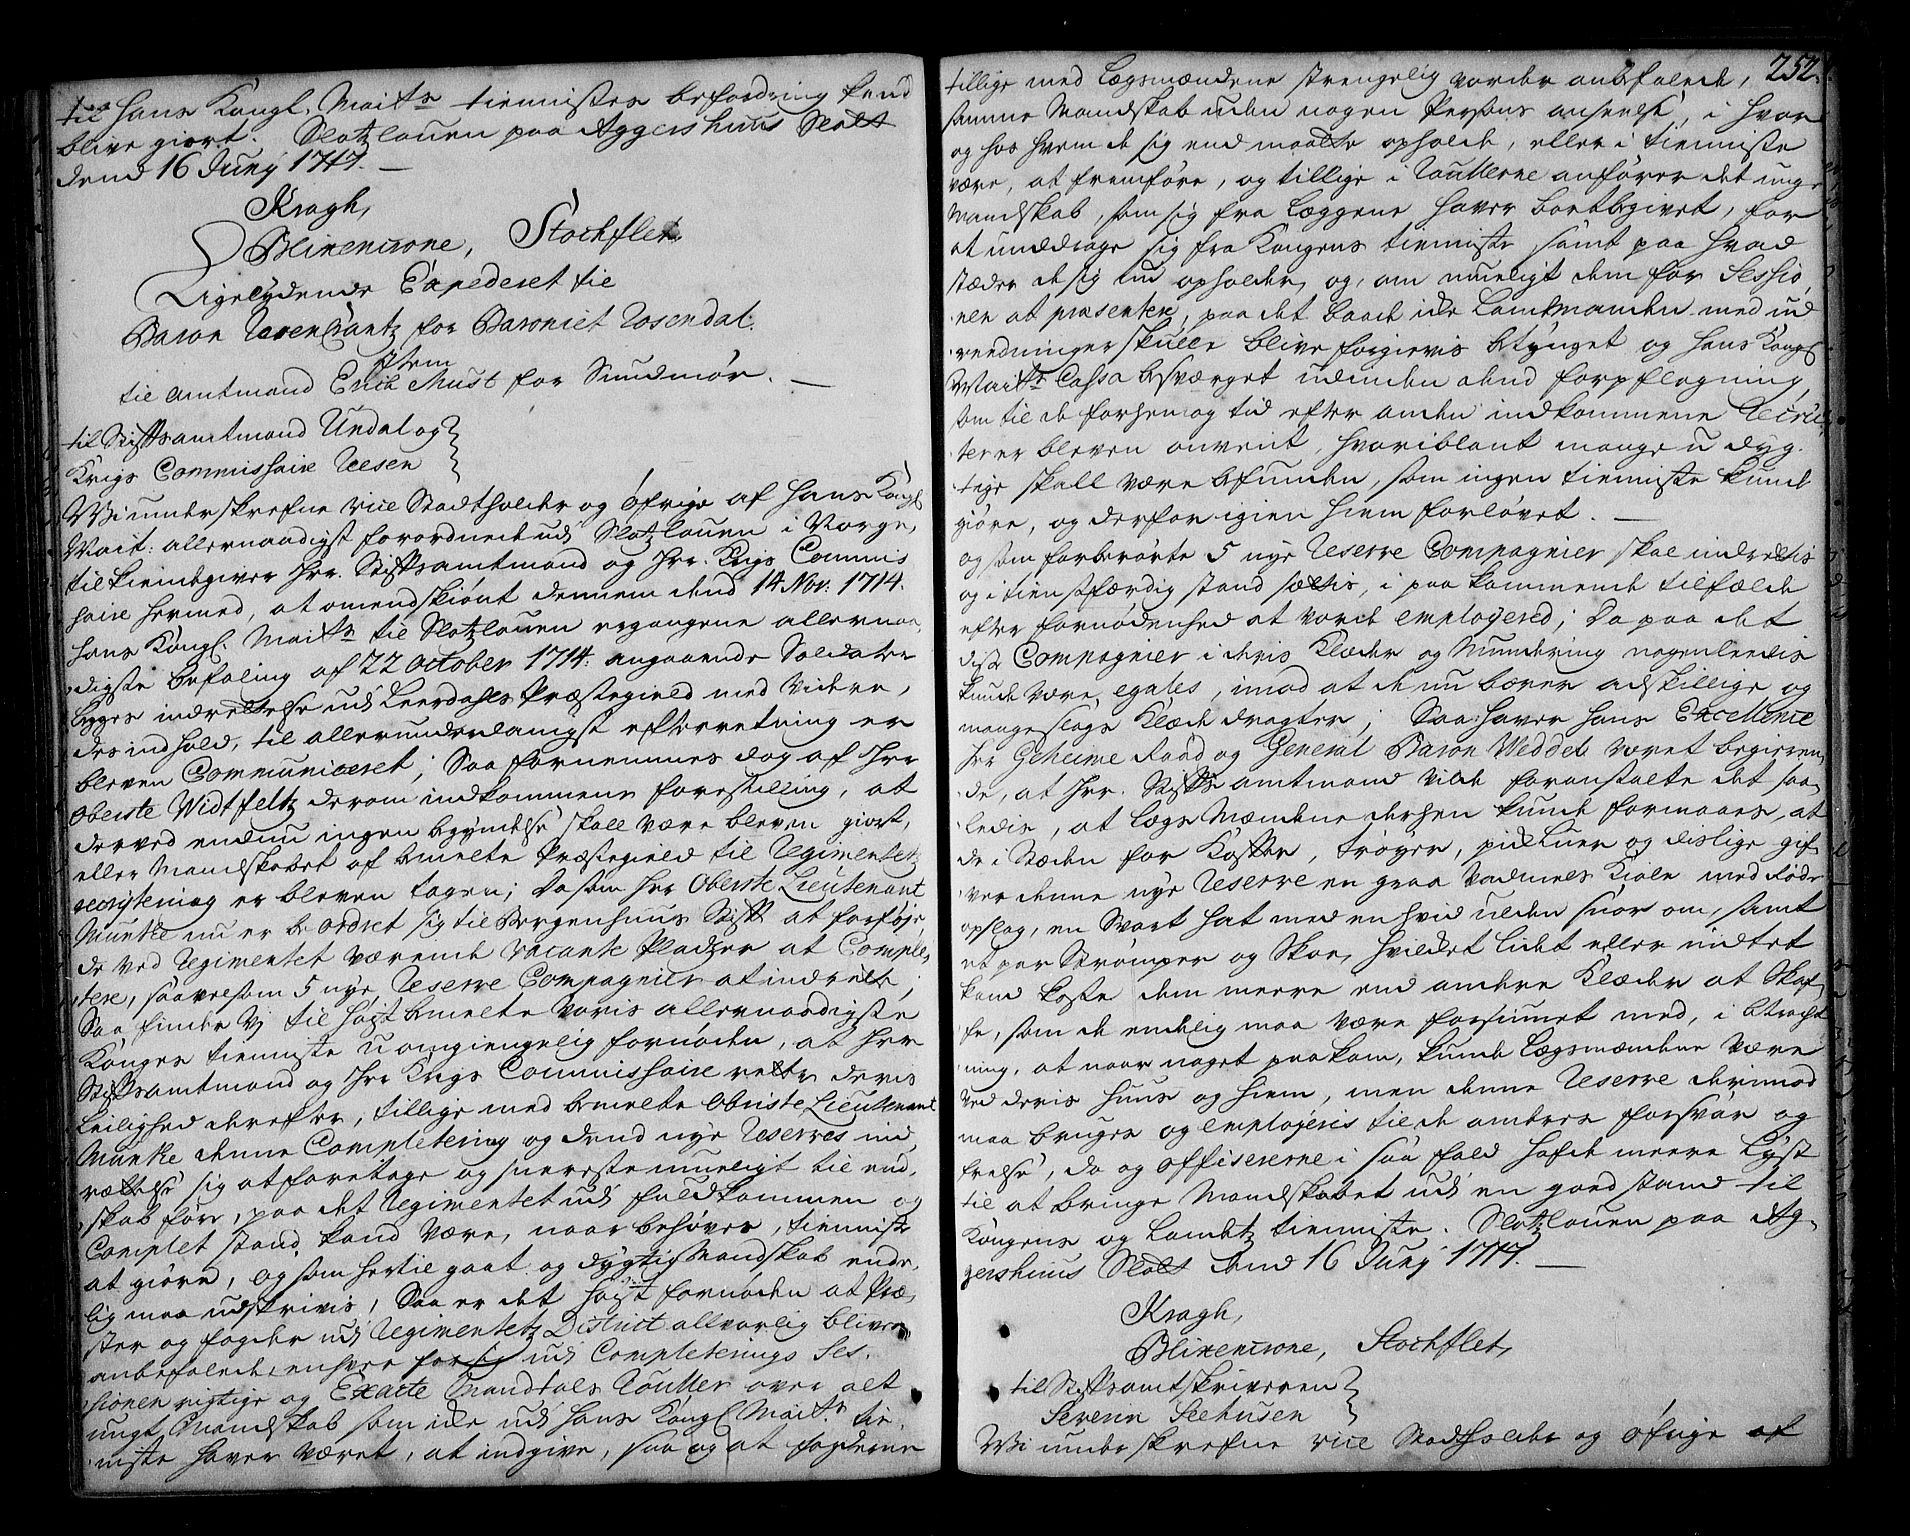 til Hans Kongl. Maits tiennistes befordring kand
blive giort. Slotzlouen paa Aggershuus Slott
dend 16 Junÿ 1717.
Kragh,
Blixencrone, Stochflet,
Ligelydende Expederet til
Baron Rosencrantz for Baroniet Rosendal.
item
til Amtmand Erich Must for Sundmør.
til Stiftsamtmand Undal og
Krigs Commissaire Reesen
Wi underskrefne vice Stadtholder og øfrige af Hans Kongl
Mait: allernaadigst forordnede udj Slotzlouen i Norge,
tilkiendegiver Hr. Stiftsamtmand og Hr. Krigs Commis
saire hermed, at omendskiønt dennem dend 14 Nov: 1714.
Hans Kongl. Maits til Slotzlouen ergangene allernaa,
digste befaling af 22 October 1714. angaaende Soldater
legges indrettelse udj Leerdahls Præstegield med videre,
des indhold, til allerunderdanigst efterretning er
bleven Communiceret; Saa fornemmes dog af Hr
Oberste Widtfeltz derom indkommene forestilling, at
derved endnu ingen begyndelse skall være bleven giort,
eller Mandskabet af bemelte Præstegield til Regimentetz
recrutering er bleven tagen; Da som Hr Oberste Lieutenant
Munke nu er beordret sig til Bergenhuus Stift at forføje
de ved Regimentet værende vacante Pladzer at Comple,
tere, saavelsom 5 nye Reserve Compagnier at indrette;
Saa finder Vj til højst bemelte Voris allernaadigste
Konges tienniste uomgiengelig fornøden, at Hr
Stiftsamtmand og Hr Krigs Commissaire rette deris
Leilighed derefter, tillige med bemelte Obriste Lieutenant
Munke denne Completering og dend nye Reserves ind,
rettelse sig at foretage og sneereste mueligt til end,
skab føre, paa det Regimentet udj fuldkommen og
Complet stand kand være, naar behøves, tienniste
at giøre, og som hertil gaat og dygtig Mandskab ende,
lig maa udskrivis, Saa er det højst fornøden at Præ,
ster og fogder udj Regimentetz District alvorlig bliver
anbefalede, enhver for sig udj Completerings Ses,
sionen rigtige og Exacte Mandtals Roller over alt
ungt Mandskab som icke udj Hans Kongl Maits tie,
niste haver været, at indgive, saa og at fogderne
252.
tillige med Lægsmændene strengelig vorder anbefalede,
samme Mandskab uden nogen Persons anseelse, i hvor
og hos hvem de sig end maatte opholde, eller i tienniste
være, at fremføre, og tillige i Roullerne anfører det unge
Mandskab, som sig fra Læggene haver bortbegivet, for
at unddrage sig fra Kongens tienniste samt paa hvad
stæder de sig nu opholder, og, om mueligt dem for Sessio
nen at præsentere, paa det baade icke Landmanden med ud
reedninger skulle blive forgievis betynget og Hans Kongl
Maits Cassa besværget udinden dend forpflegning,
som til de forhen og tid efter anden indkommene Recru,
ter er bleven anvent, hvoriblant mange u dyg,
tige skall være befunden, som ingen tienniste kunde
giøre, og derfor igien hiem forlovet.
og som forberørte 5 nye Reserve Compagnier skal indrettis
og i tienstfærdig stand sættis, i paakommende tilfælde
efter fornødenhed at vorde employered; Da paa det
disse Compagnier i deris Klæder og Mundering nogenleedis
kunde være egales, imod at de nu bærer adskillige og
mange slags Klædedragter; Saa haver Hans Excellence
Hr Geheime Raad og General Baron Weddel været begieren
de, at Hr. Stiftsamtmand vilde foranstalte det saa,
ledis, at Lægsmændene derhen kunde formaaes, at
de i Stæden for Kofter, trøyer, pidtluer og dislige gif,
ver denne nye Reserve en graa Vadmels Kiole med Røde
opslag, en Svart hat med en hvid ulden snor om, samt
et par Strømper og Skoe, hvilcket lidet eller indtet
kand koste dem meere end andre Klæder at Skaf,
fe, som de endelig maa være forsiunet med, i betragt
ning, at naar noget paakom, kunde Lægsmændene være
ved deris huus og hiem, men denne Reserve derimod
maa bruges og employeris til de andres forsvar og
frelse, da og officererne i saa fald hafde meere Lyst
til at bringe Mandskabet udj en goed stand til
Kongens og Landetz tienniste. Slotzlouen paa Ag,
gershuus Slott dend 16 Junÿ 1717.
Kragh,
Blixencrone, Stochflet,
til Stiftsamtskriveren
Severin Seehusen
Wi underskrefne vice Stadtholder og øfrige af